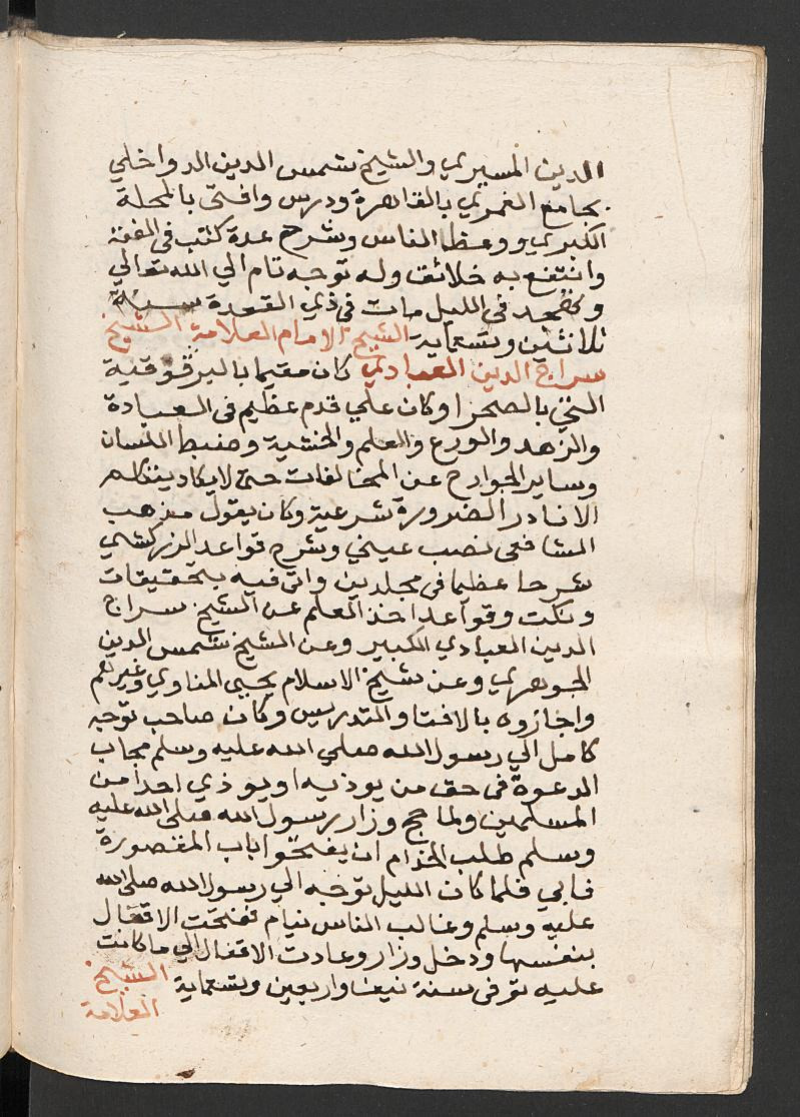 الدين المسيري والشيخ شمس الدين الدواخلي
بجامع الغمري بالقاهرة ودرس وافتى بالمحلة
الكبري ووعظ الناس وشرح عدة كتب في الفقه
وانتفع به خلائق وله توجه تام الي الله تعالي
وتهجد في الليل مات في ذي القعدة سنة
ثلاثين وتسعماية الشيخ الامام العلامة الشيخ
سراج الدين العبادي كان مقيما بالبرقوقية
التي بالصحرا وكان علي قدم عظيم في العبادة
والزهد والورع والعلم والخشية وضبط اللسان
وساير الجوارح عن المخالفات حتي لا يكاد يتكلم
الا نادرا لضرورة شرعية وكان يقول مذهب
الشافعي نصب عيني وشرح قواعد الزركشي
شرحا عظيما في مجلدين واتي فيه بتحقيقات
ونكت وقواعد اخذ العلم عن الشيخ سراج
الدين العبادي الكبير وعن الشيخ شمس الدين
الجوهري وعن شيخ الاسلام يحيي المناوي وغيرهم
واجازوه بالافتا والتدريس وكان صاحب توجه
كامل الي رسول الله صلي الله عليه وسلم مجاب
الدعوة في حق من يوذيه او يوذي احدا من
المسلمين ولما حج وزار رسول الله صلي الله عليه
وسلم طلب الخدام ان يفتحوا باب المقصورة
فابي فلما كان الليل توجه الي رسول الله صلي الله
عليه وسلم وغالب الناس نيام فتفتحت الاقفال
بنفسها ودخل وزار وعادت الاقفال الي ما كانت
عليه توفي سنة نيف واربعين وتسعماية الشيخ
العلامة